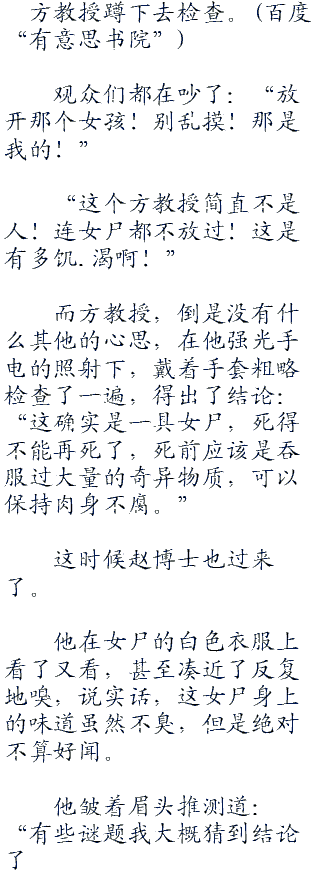 方教授蹲下去检查。(百度
“有意思书院”)
观众们都在吵了：“放
开那个女孩！别乱摸！那是
我的！”
“这个方教授简直不是
人！连女尸都不放过！这是
有多饥.渴啊！”
而方教授，倒是没有什
么其他的心思，在他强光手
电的照射下，戴着手套粗略
检查了一遍，得出了结论：
“这确实是一具女尸，死得
不能再死了，死前应该是吞
服过大量的奇异物质，可以
保持肉身不腐。”
这时候赵博士也过来
了。
他在女尸的白色衣服上
看了又看，甚至凑近了反复
地嗅，说实话，这女尸身上
的味道虽然不臭，但是绝对
不算好闻。
他皱着眉头推测道：
“有些谜题我大概猜到结论
了